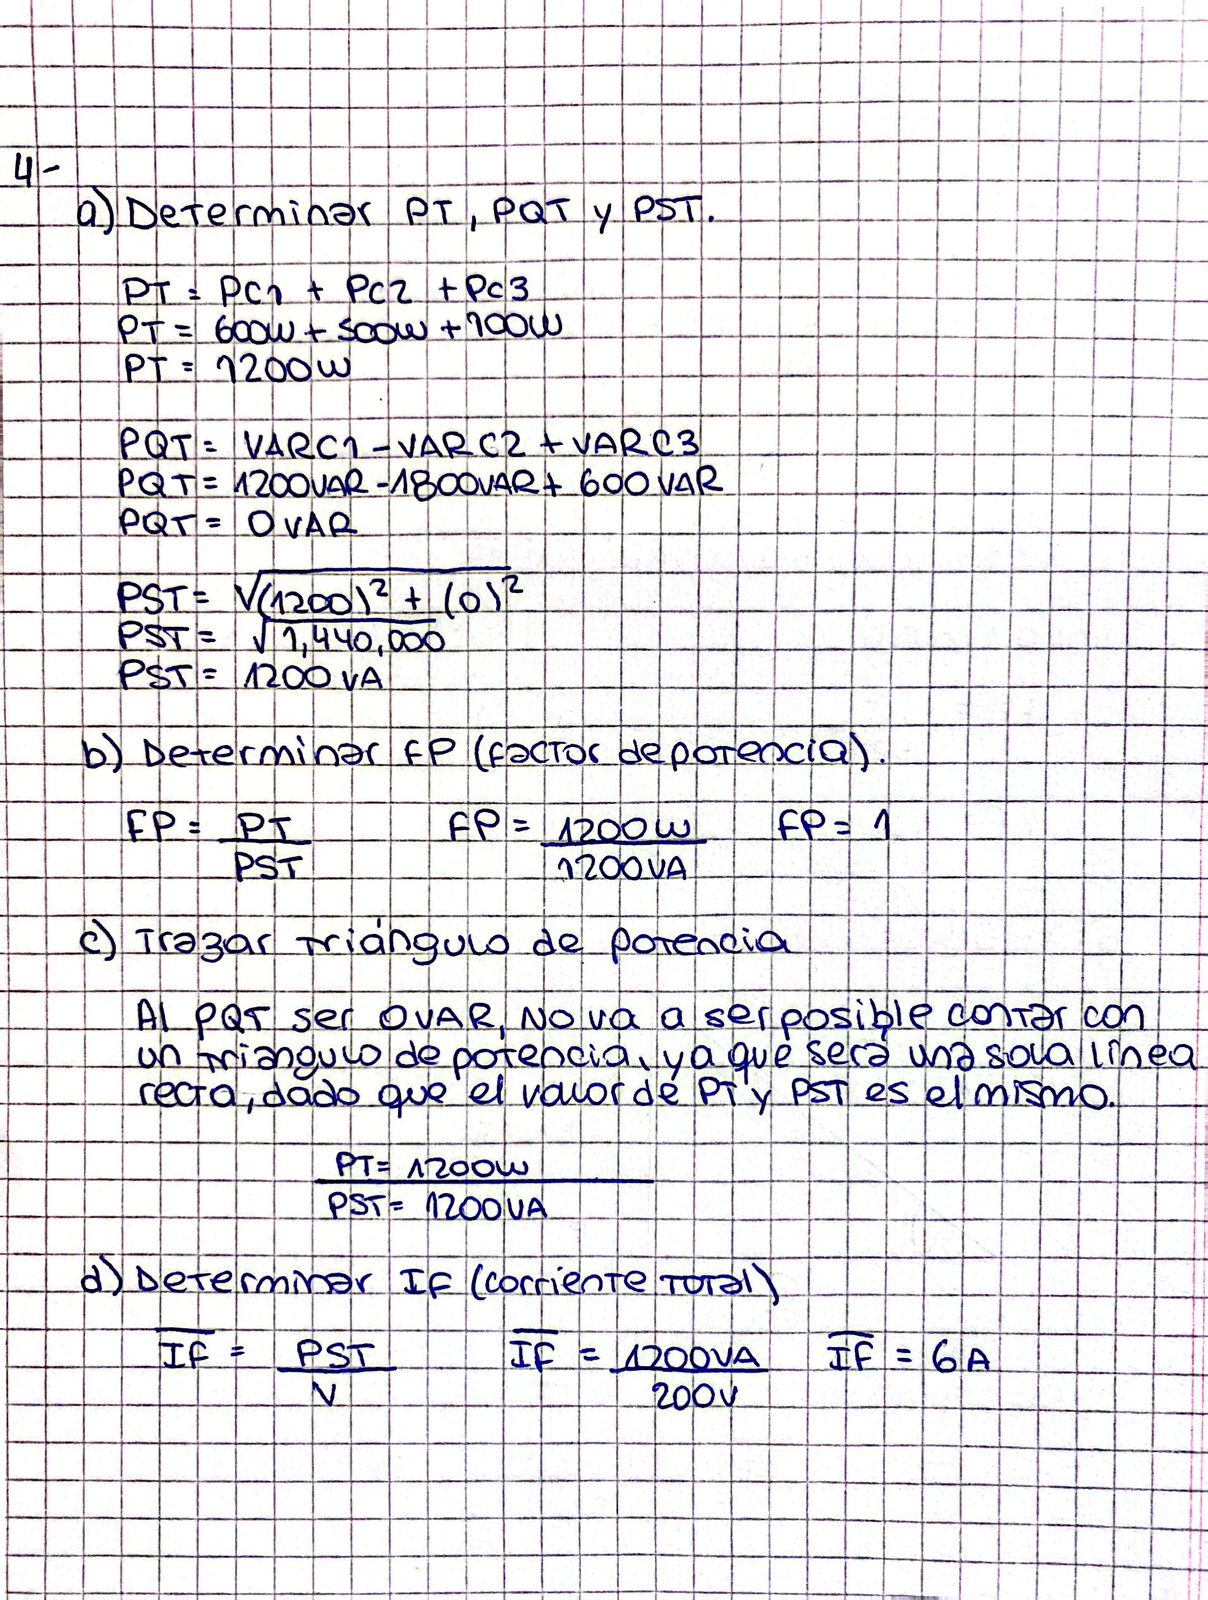 4-
a) Determinar PT, PQT y PST.
PT = PC1 + PC2 + PC3
PT = 600W + 500W + 100W
PT = 1200W
PQT = VARC1 - VARC2 + VARC3
PQT = 1200VAR - 1800VAR + 600VAR
PQT = 0VAR
PST = √(1200)² + (0)²
PST = √1,440,000
PST = 1200VA
b) Determinar FP (factor de potencia).
FP = PT / PST FP = 1200W / 1200VA FP = 1
c) Trazar triángulo de potencia
Al PQT ser 0VAR, NO va a ser posible contar con
un triángulo de potencia, ya que será una sola línea
recta, dado que el valor de PT y PST es el mismo.
PT = 1200W
PST = 1200VA
d) Determinar IF (corriente total)
IF = PST / V IF = 1200VA / 200V IF = 6A